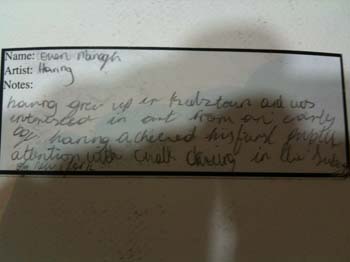 Name: Euan
Artist: Haring
Notes:
haring grew up in and was
interested in art from an early
age haring achieved his first public
attention with chalk drawing in the
of New York